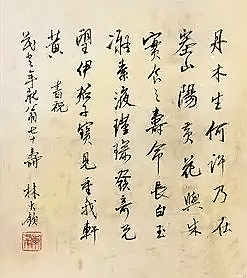 丹木生何許乃在
密山陽黃花朱
實食之壽命長白玉
凝素液瑾瑜發奇光
伊君子寶見重我軒
黃 書祝
年翁七十壽 林大欽